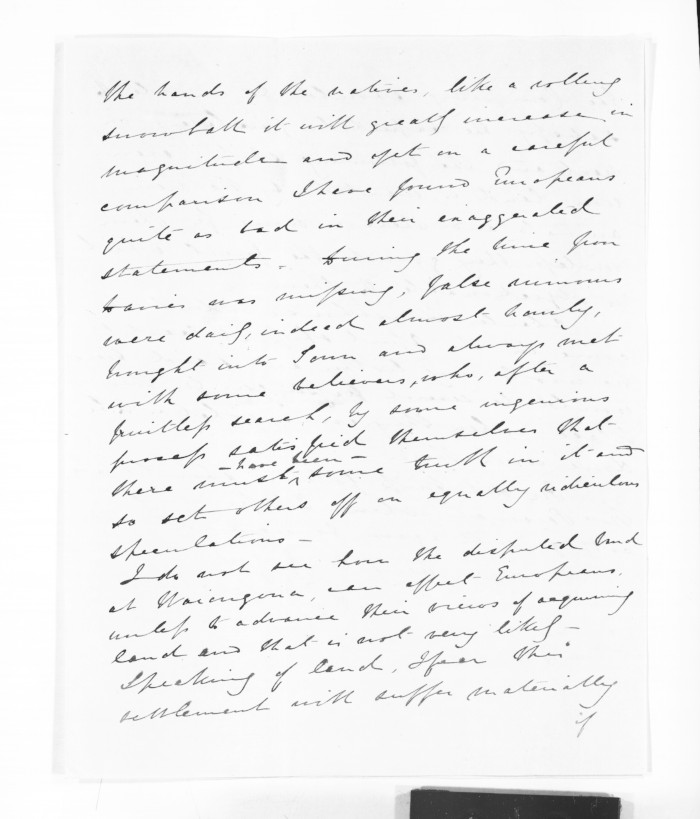 the hands of the natives, like a rolling
snowball it will greatly increase in
magnitude and yet on a careful
comparison I have found Europeans
quite as bad in their exaggerated
statements. During the time poor
Davies was missing, false rumours
were daily, indeed almost hourly,
brought into Town and always met
with some believers, who, after a
fruitless search, by some ingenious
process satisfied themselves that
- have been -
there must some truth in it and
so set others off on equally ridiculous
speculations -
I do not see how the disputed land
at Waiongona, can affect Europeans,
unless to advance their views of acquiring
land and that is not very likely -
Speaking of land, I fear this
settlement will suffer materially
if